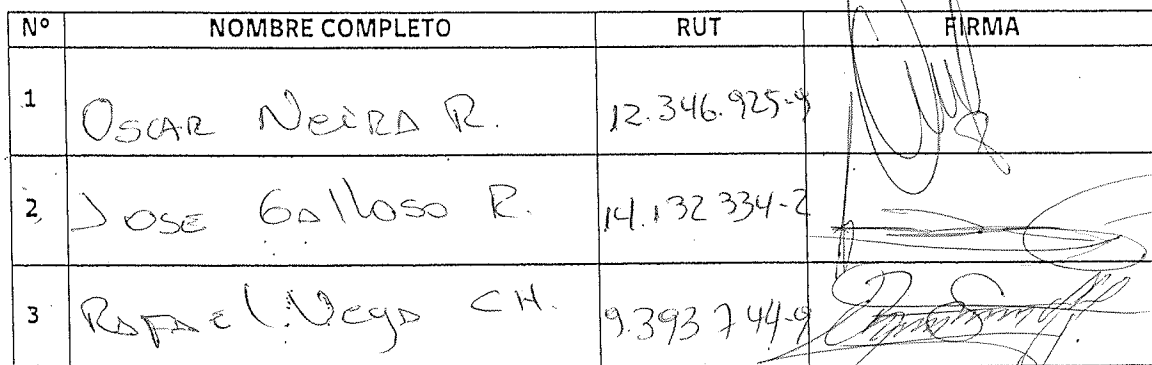 Nº NOMBRE COMPLETO RUT FIRMA
1 OSCAR NeiRA R. 12.346.925-9
2 JOSE GAlloso R. 14.132 334-2
3 RAFAEL Vega CH. 9.393 744-9